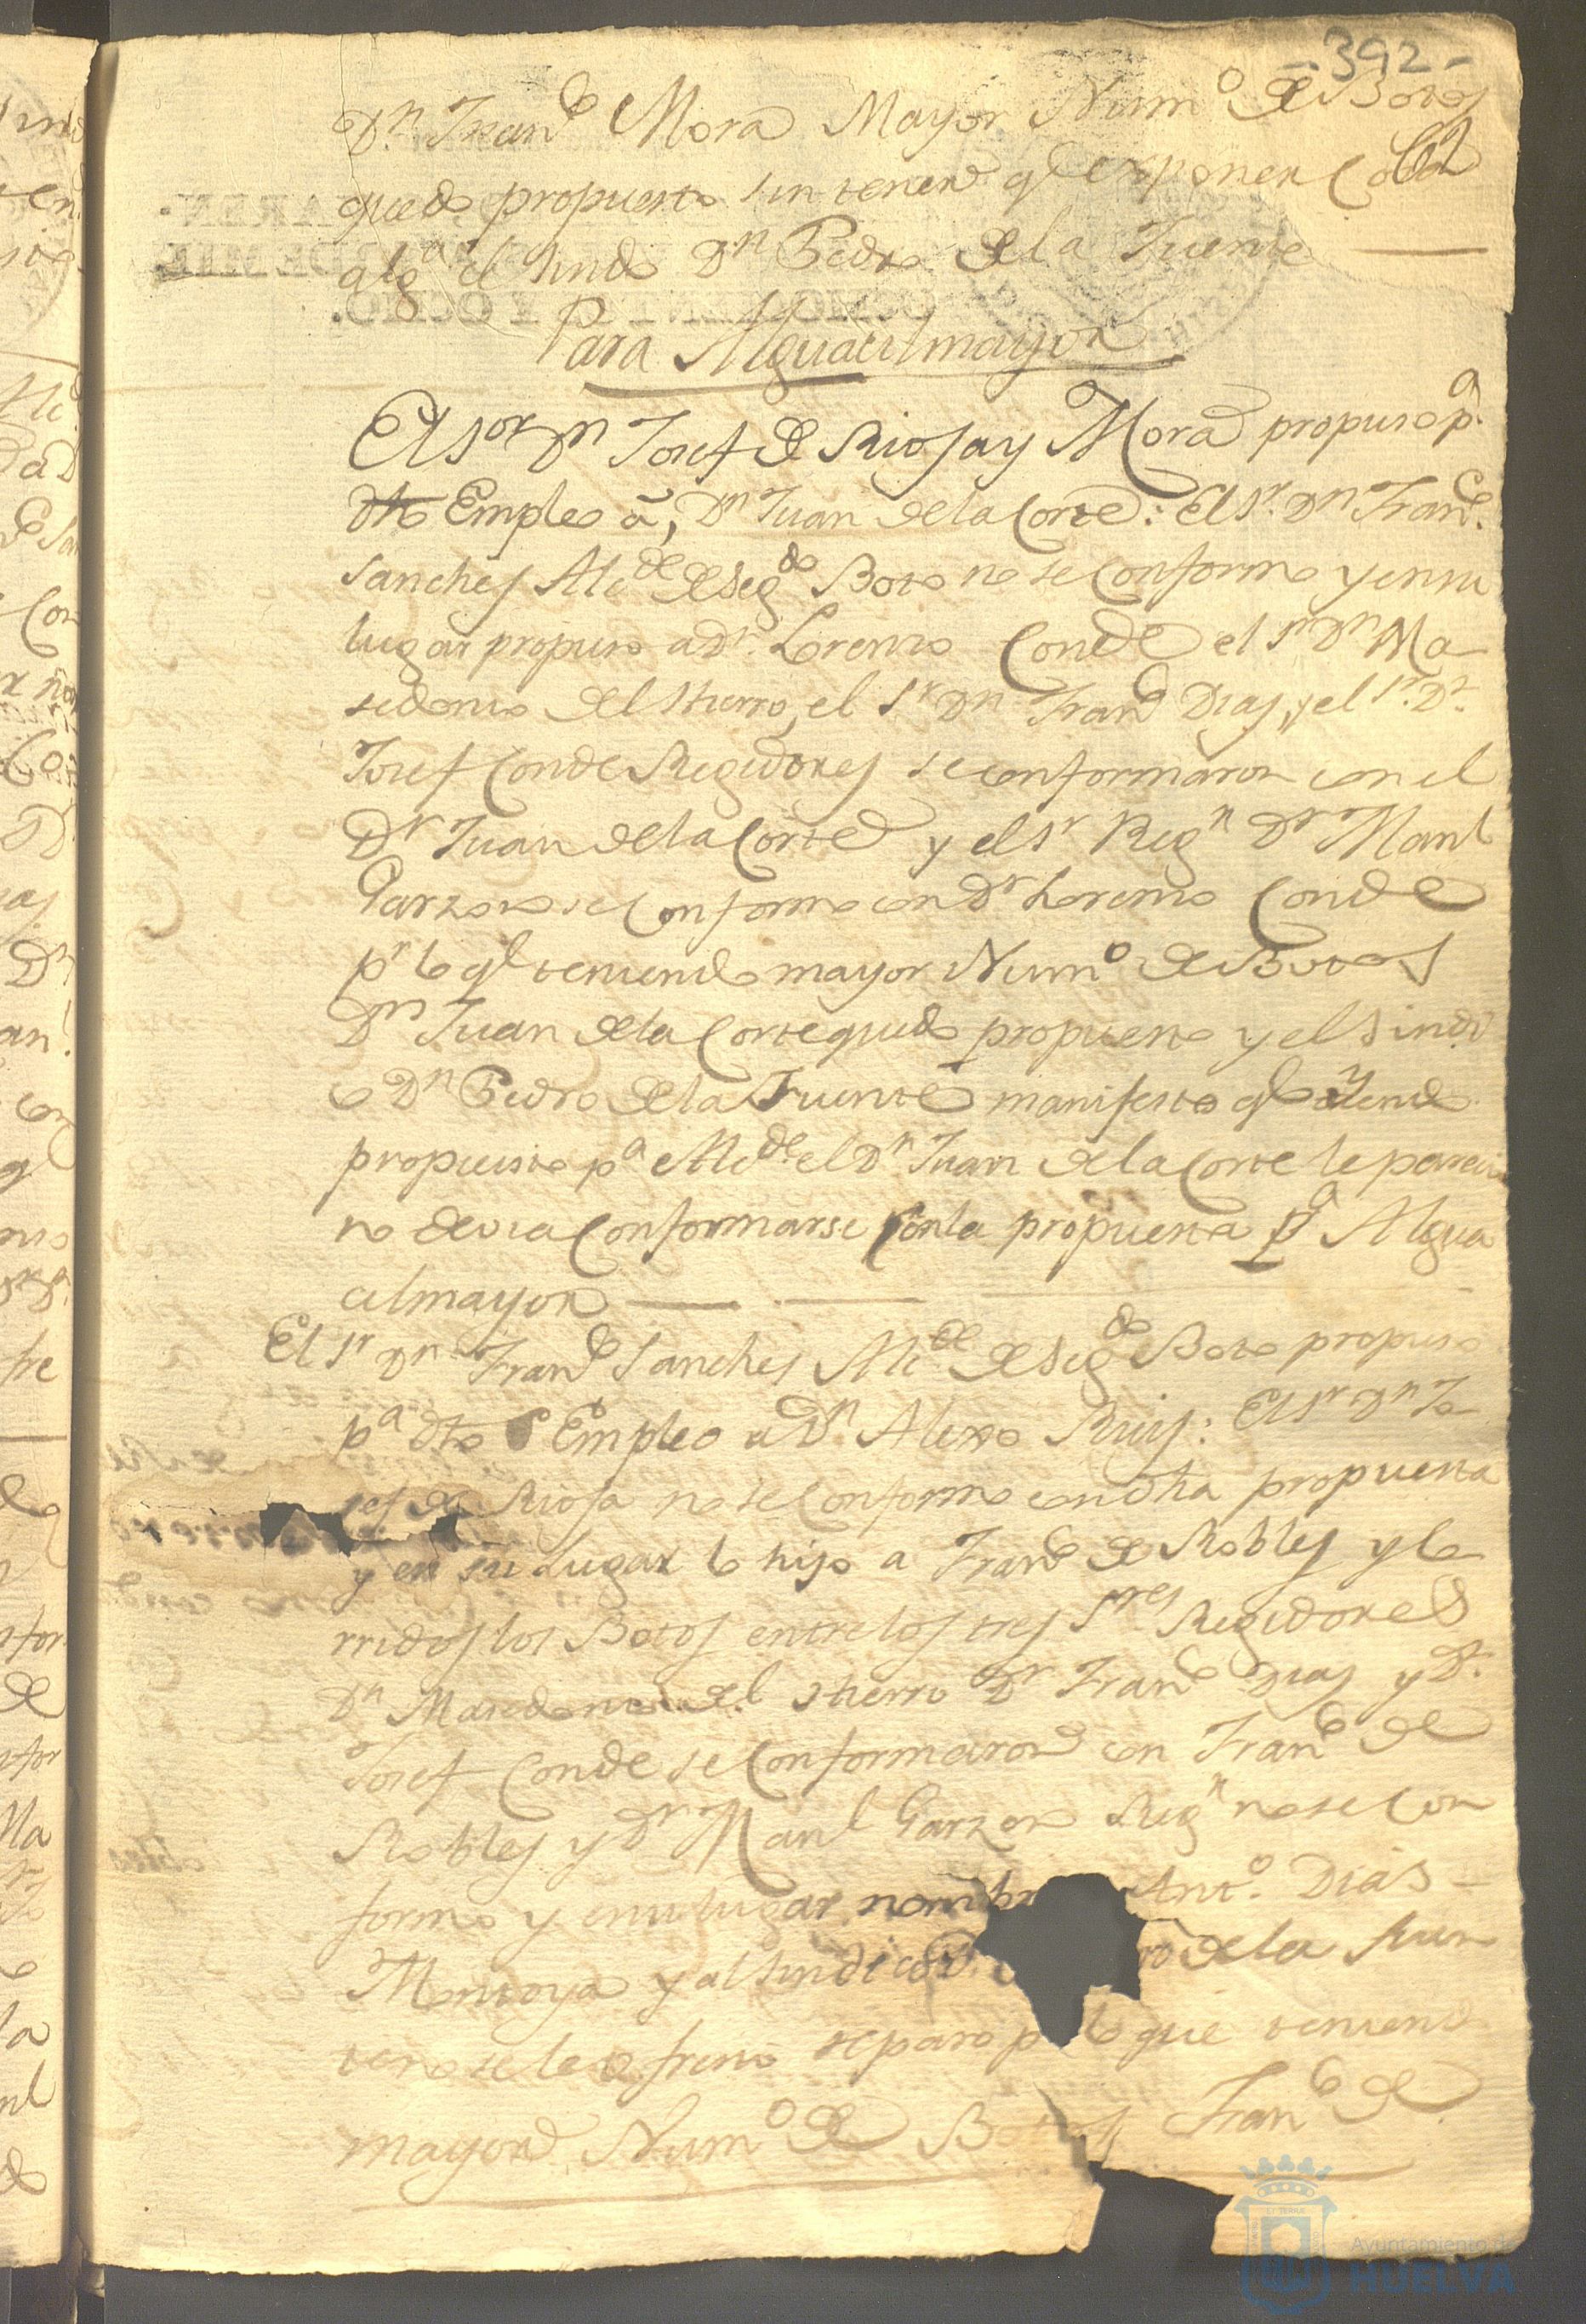 -392-
Dn. Franco Mora Mayor Numo de Botos
quedo propuesto sin tener qe exponer Cosa
alga el sindo Dn Pedro de la Fuente
Para Alguacil mayor
El Sor Dn Josef de Rioja y Mora propuso pa.
dho Empleo a, Dn Juan de la Corte: El Sr. Dn Franco.
Sanches Alcde de Segdo Boto no se Conformo y en su
lugar propuso a Dn. Lorenso Conde el Sr Dn Ma
sedonio del Hierro, el Sr Dn Franco Dias, y el Sr. Dn.
Josef Conde Regidores se conformaron con el
Dn Juan de la Corte y el Sr Regn Dn Manl
Garzon se Conformo con Dn Lorenso Conde
pr lo qe teniendo mayor Numo de Botos
Dn Juan de la Corte quedo propuesto y el Sindi
co Dn Pedro de la Fuente manifesto qe
propuesto pa Alcde. el Dn Juan de la Corte le parecia
no devia Conformarse Con la propuesta pa Algua
cil mayor
El Sr Dn Franco Sanches Alcde de Segdo Boto propuso
pa dho Empleo a Dn. Alexo Ruis: El Sr Dn Jo
sef de Rioja no se Conformo con dha propuesta
y en su Lugar lo hiso a Franco de Robles y co
rridos los Botos entre los tres Sres Regidores
Dn Masedonio del Hierro Dn Franco Dias y Dn.
Josef Conde se Conformaron con Franco de
Robles y Dn Manl Garzon Regn no se Con
formo y en su lugar nombr Anto. Dias
Montoya y al Sindico Dn. ro de la Fuen
te no se le ofrecio reparo p lo que teniendo
mayor Numo de Botos Franco de
Ayuntamiento de
HUELVA